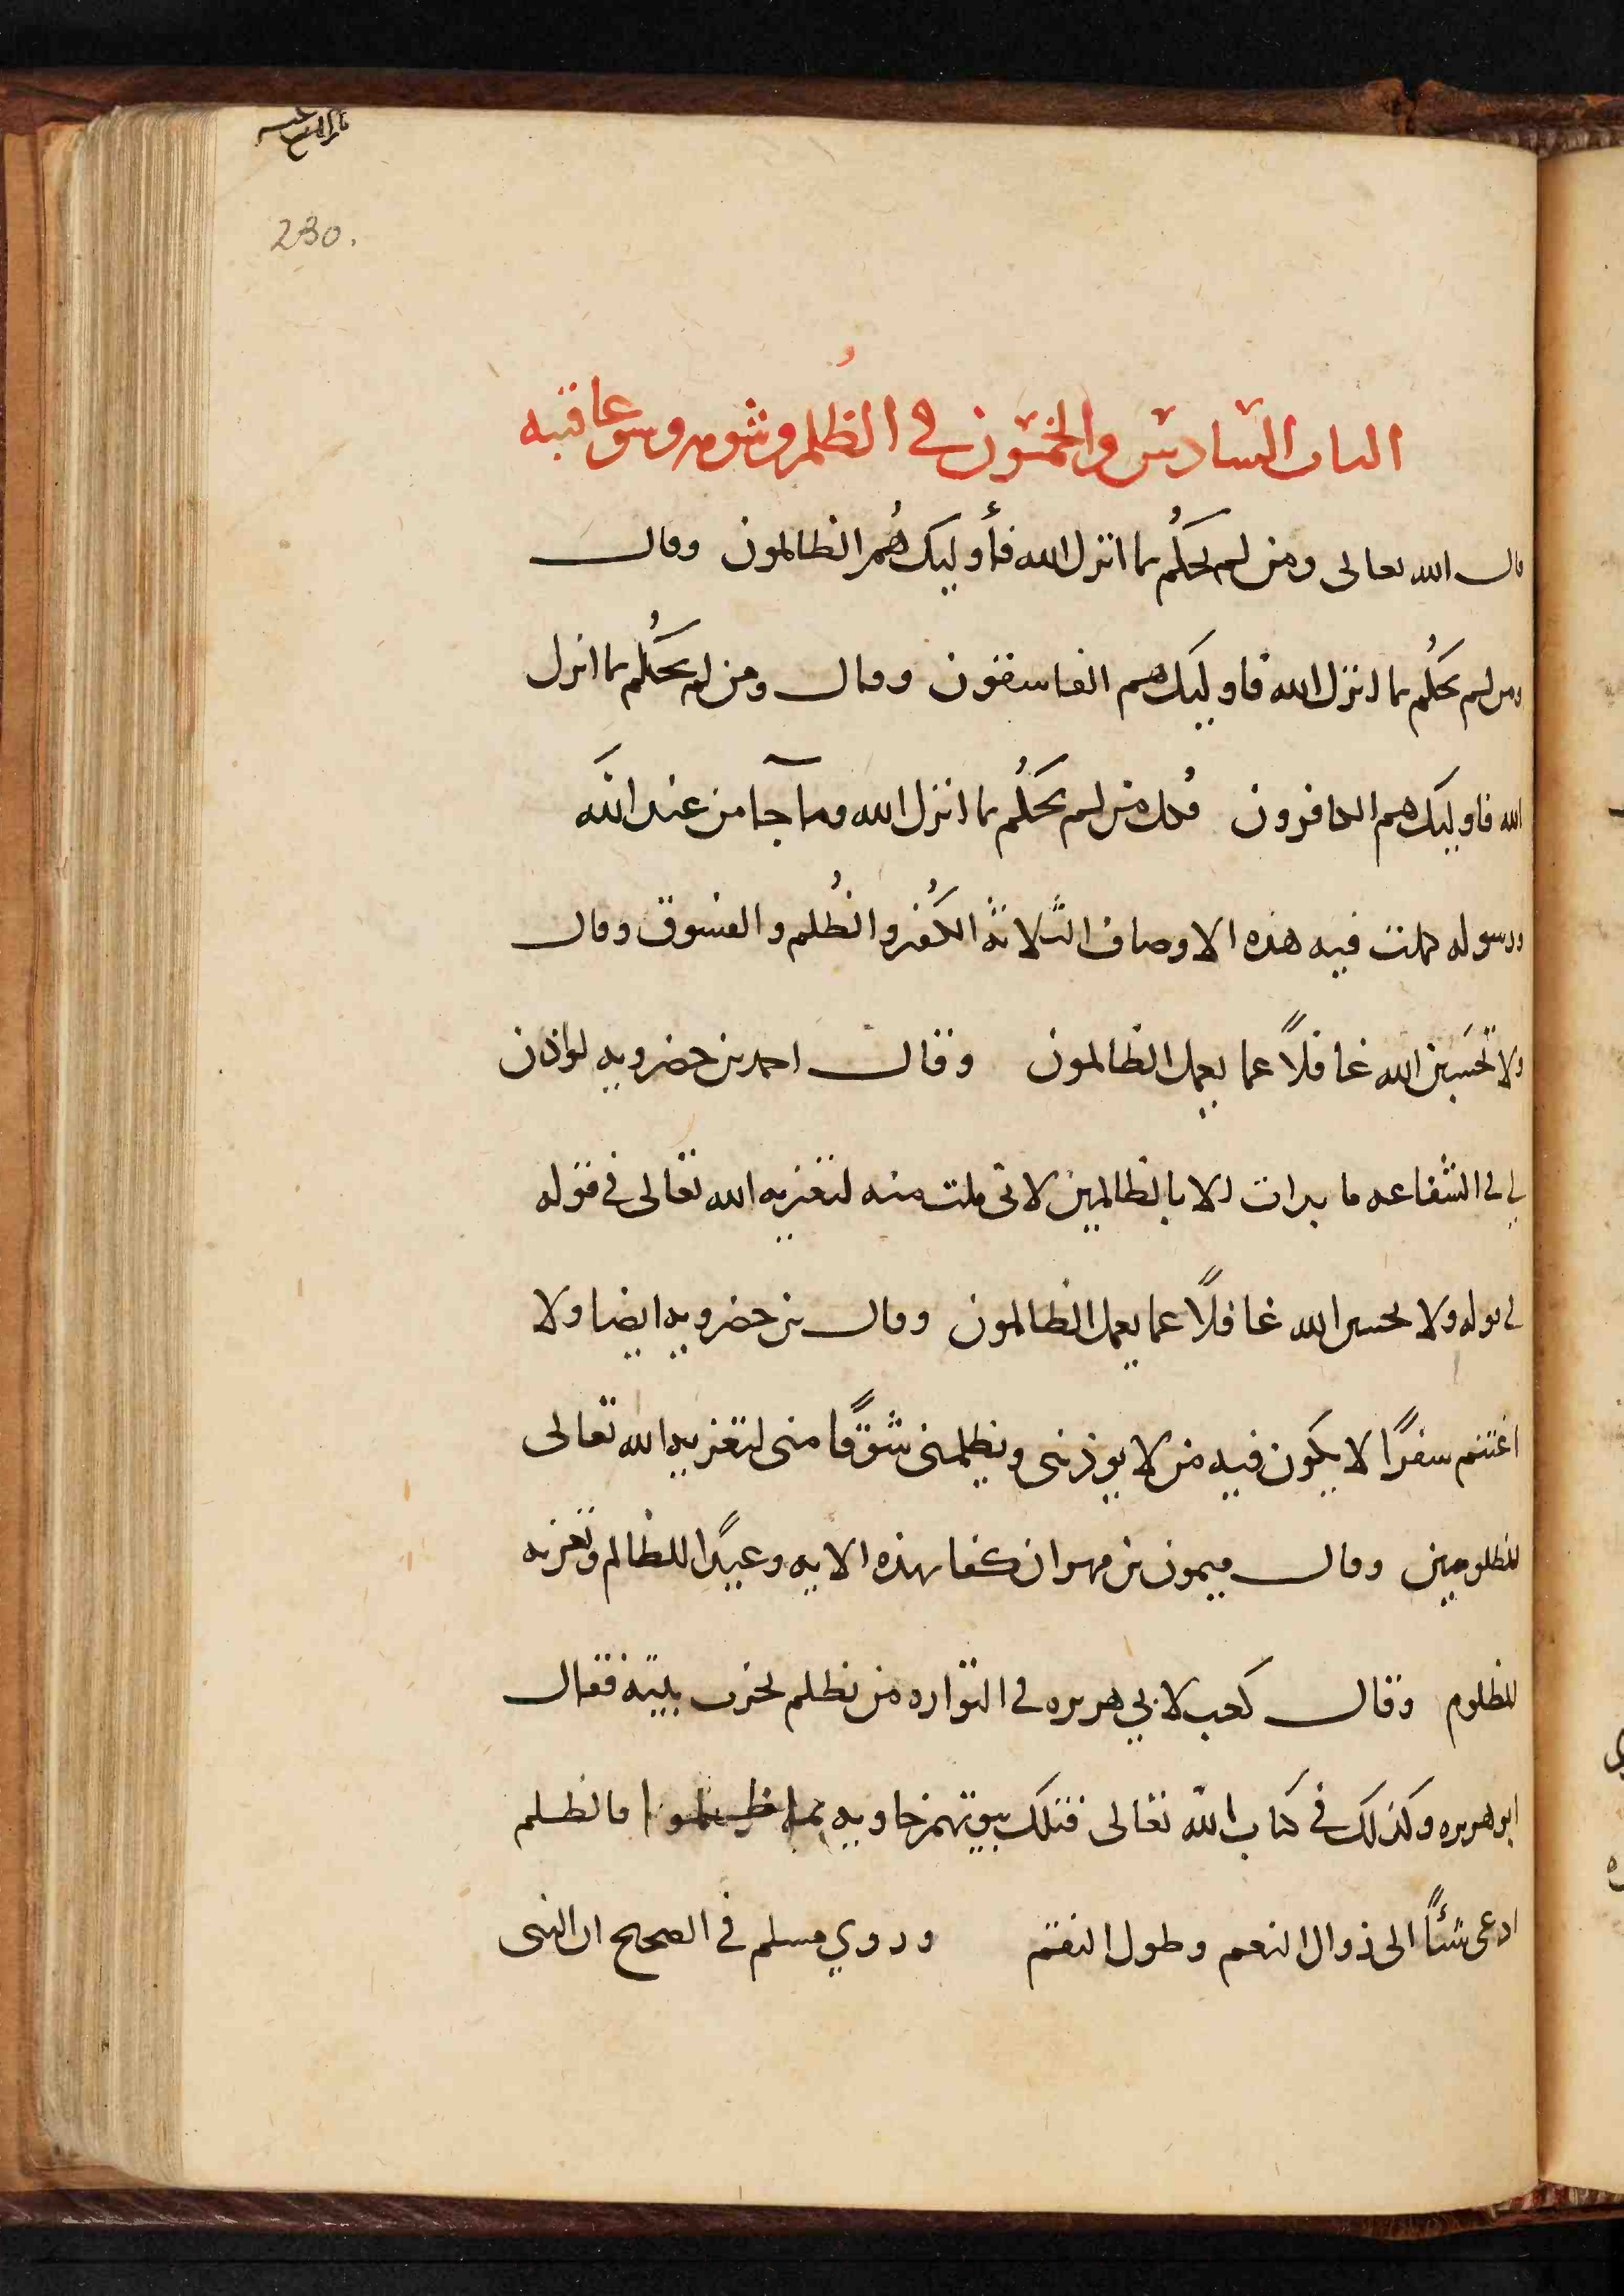 230.
الباب السادس والخمسون في الظُلم وشومه وسو عاقبه
قال الله تعالى ومن لم يحكُم بما انزل الله فأوليك هُم الظالمون وقال
ومن لم يحكُم بما انزل الله فاوليك هم الفاسقون وقال ومن لم يحكُم بما انزل
الله فاوليك هم الكافرون فكل من لم يحكُم بما انزل الله وما جآ من عند الله
ورسوله كملت فيه هذه الاوصاف الثلاثة الكُفر والظُلم والفسوق وقال
ولا تحسَبن الله غافلاً عما يعمل الظالمون وقال احمد بن حضرويه لو اذن
لي في الشفاعه ما بدات الا بالظالمين لاني ملت منه لتعزيه الله تعالى في قوله
في قوله ولا تحسبن الله غافلاً عما يعمل الظالمون وقال بن حضرويه ايضا ولا
اغتنم سفرًا لا يكون فيه من لا يوذيني ويظلمني شوقًا مني لتعزيه الله تعالى
للمظلومين وقال ميمون بن مهران كفا بهذه الايه وعيدًا للظالم وتعزيه
للمظلوم وقال كعب لابي هريره في التواره من يظلم يخرب بيته فقال
ابو هريره وكذلك في كتاب الله تعالى فتلك بيوتهم خاويه بما ظلموا فالظلم
ادعى شئًا الى زوال النعم وطول النقم وروي مسلم في الصحيح ان النبي